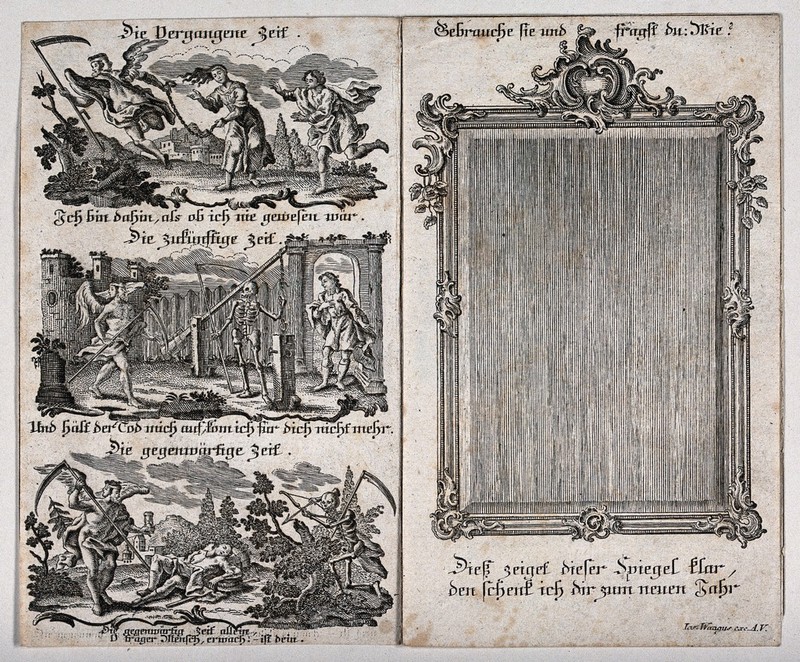 Die Vergangene Zeit.
Ich bin dahin, als ob ich nie gewesen wär.
Die zukünftige Zeit.
Und hält der Tod mich auf, kom ich für dich nicht mehr.
Die gegenwärtige Zeit.
Die gegenwärtig Zeit allein
O träger Mensch, erwach: ist dein.
Gebrauche sie und frägst du: Wie?
Dieß zeiget dieser Spiegel klar,
den schenk ich dir zum neuen Jahr
Ios: Waagus, exc. A.V.